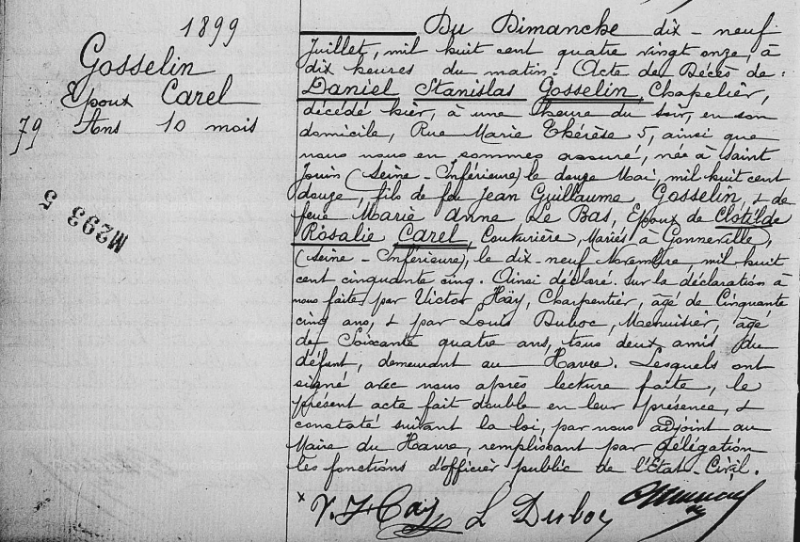 1899
Gosselin
Epoux Carel
79 Ans 10 mois
M293 5
Du Dimanche dix-neuf
Juillet, mil huit cent quatre vingt onze, à
dix heures du matin. Acte de Décès de:
Daniel Stanislas Gosselin, Chapelier,
décédé hier, à une heure du soir, en son
domicile, Rue Marie Thérèse 5, ainsi que
nous nous en sommes assuré, née à Saint
Jouin (Seine-Inférieure) le douze Mai, mil huit cent
douze, fils de feu Jean Guillaume Gosselin, & de
feue Marie Anne Le Bas, Epoux de Clotilde
Rosalie Carel, Couturière, Mariés à Gonneville,
(Seine-Inférieure), le dix-neuf Novembre mil huit
cent cinquante cinq. Ainsi déclaré. Sur la déclaration à
nous faite par Victor Häy, Charpentier, âgé de Cinquante
cinq ans, & par Louis Duboc, Menuisier, âgé
de Soixante quatre ans, tous deux amis du
défunt, demeurant au Havre. Lesquels ont
signé avec nous après lecture faite, le
présent acte fait double en leur présence, &
constaté suivant la loi, par nous adjoint au
Maire du Havre, remplissant par délégation
les fonctions d'officier public de l'Etat Civil.
x V. Hay L Duboc